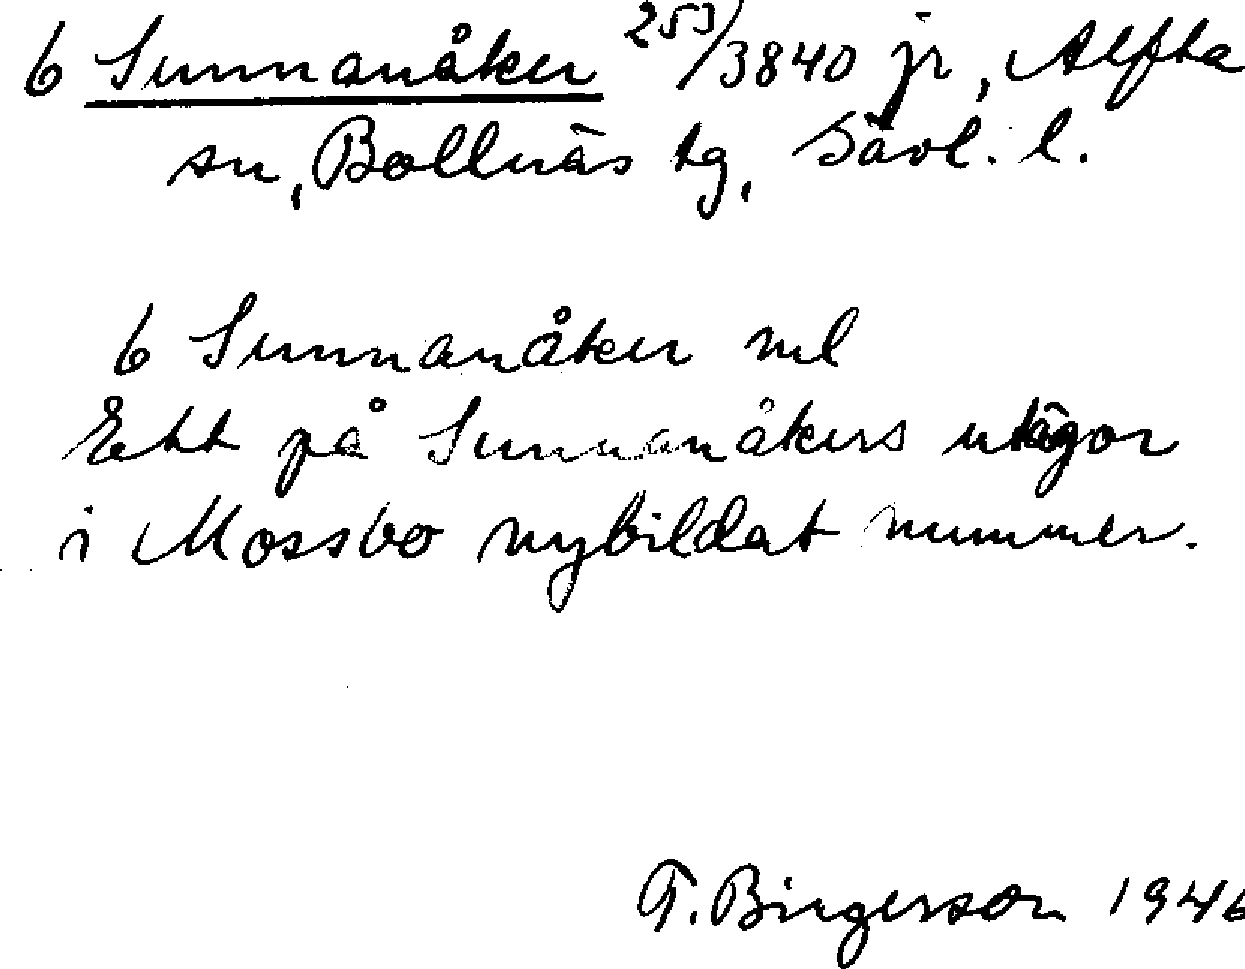 6 Sunnanåker 253/3840 jr, Alfta
sn, Bollnäs tg, Gävl. l.
6 Sunnanåker ml
Ett på Sunnanåkers utägor
i Mossbo nybildat nummer.
T. Birgersson 1946